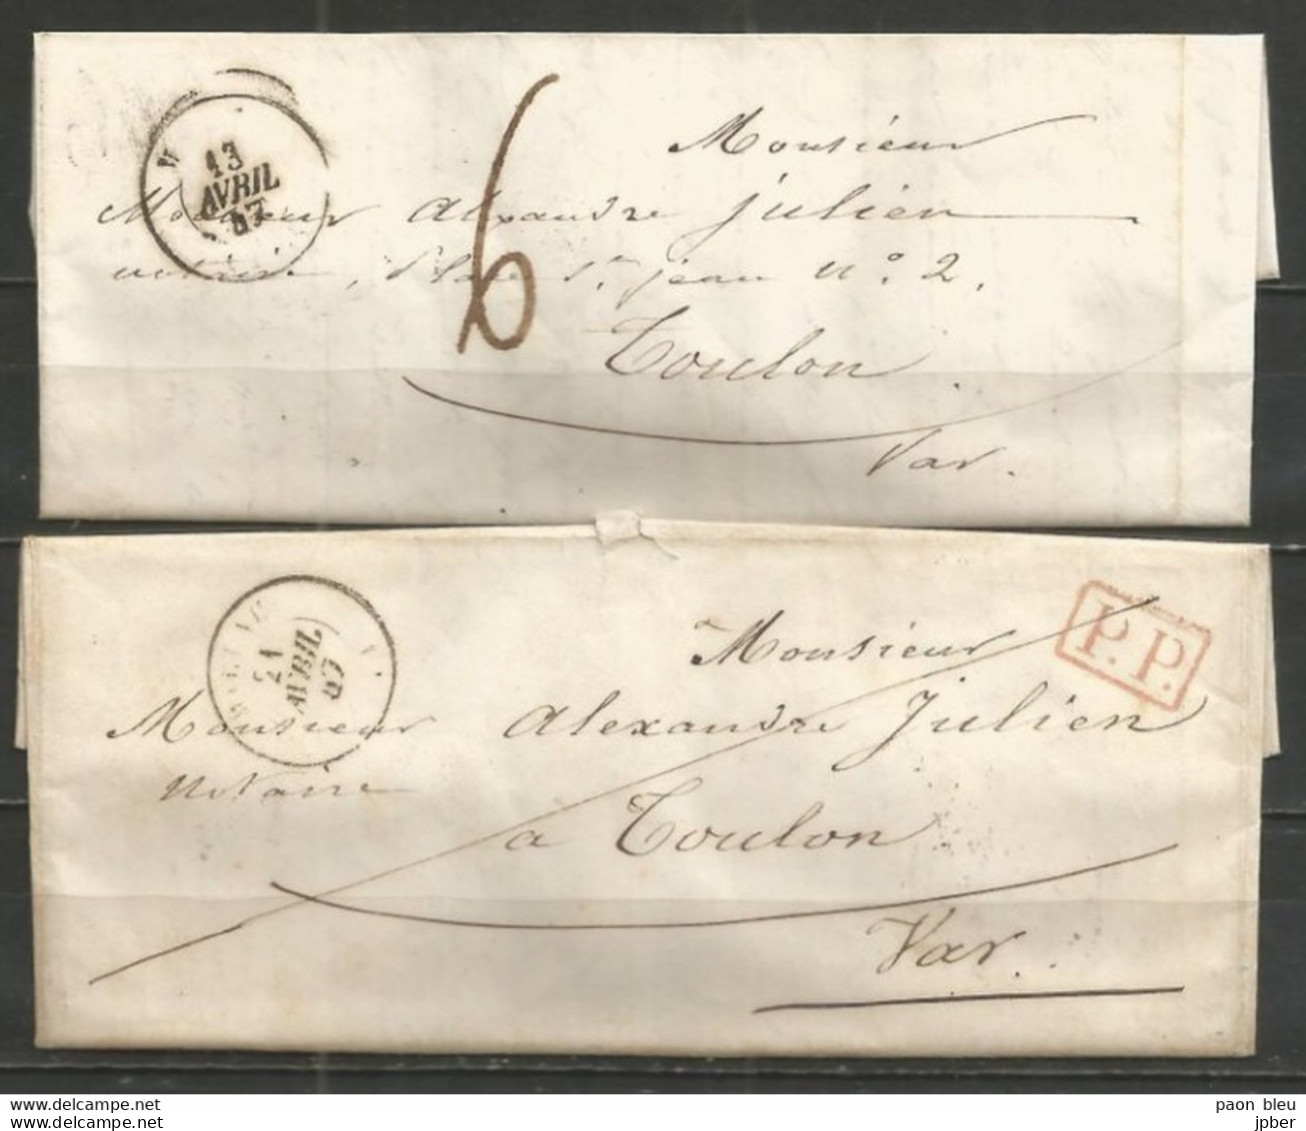 13
AVRIL
6
Monsieur
Monsieur Alexandre Julien
notaire, Place St. jean n° 2.
Toulon
Var.
21
AVRIL
P.P.
Monsieur
Monsieur Alexandre Julien
Notaire
a Toulon
Var.
www.delcampe.net
www.delcampe.net
paon bleu
jpber